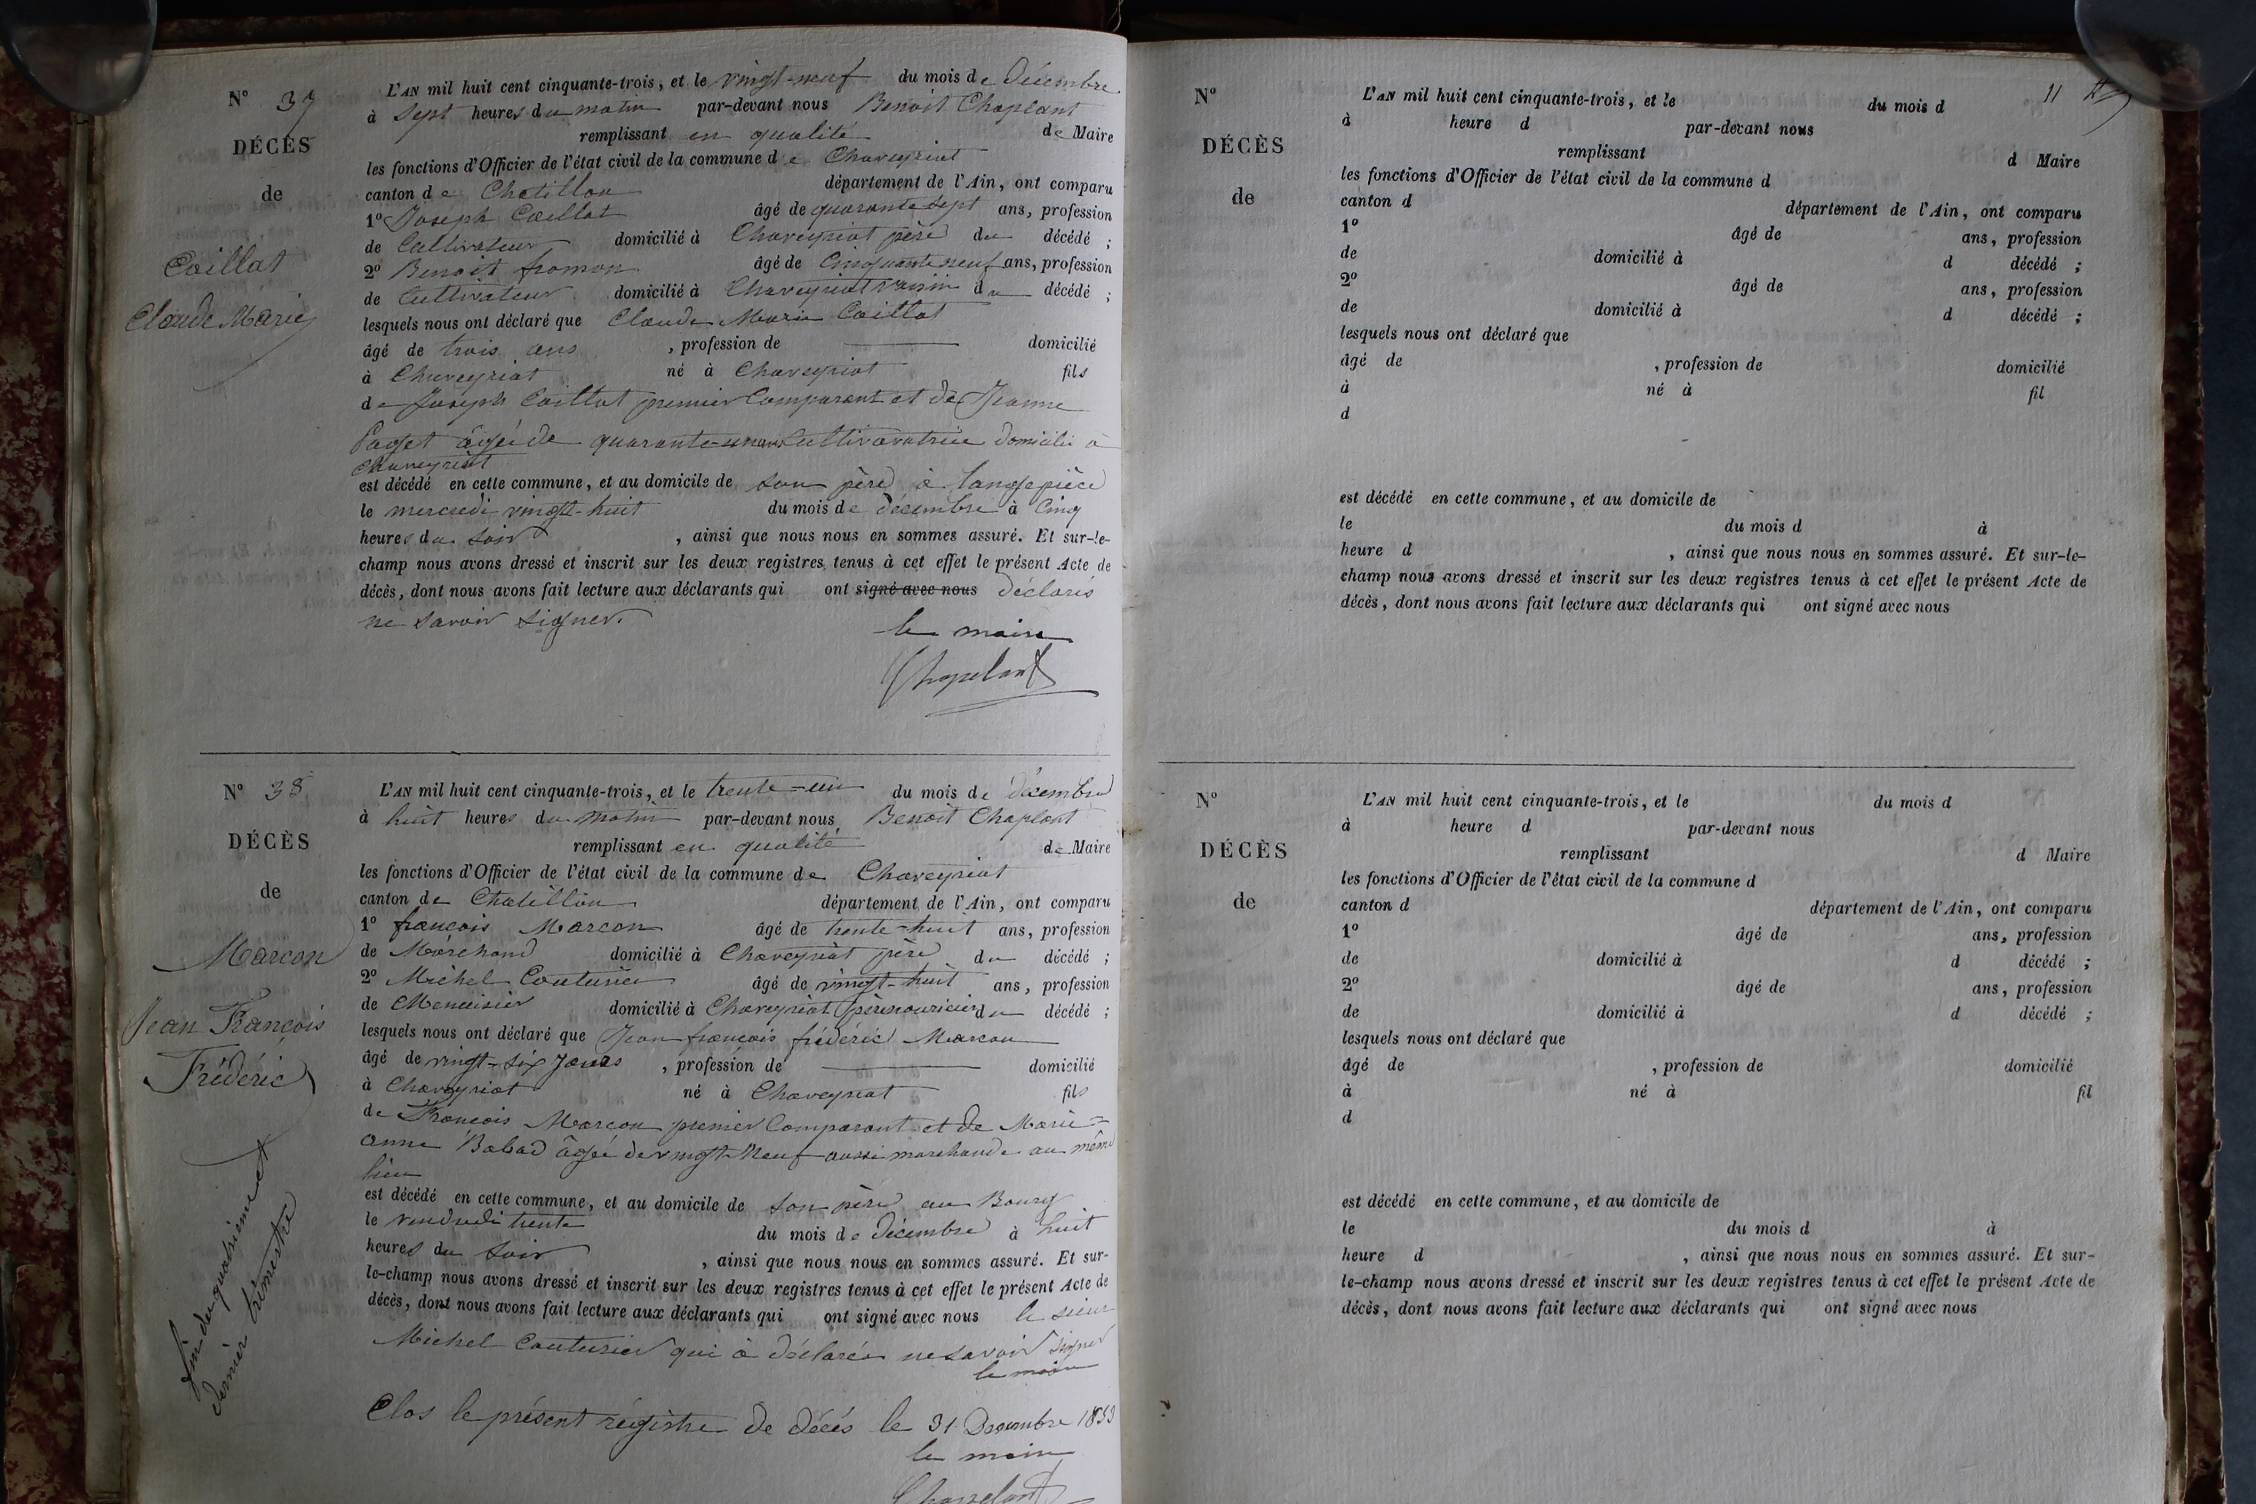 N° 37
DÉCÈS
de
Caillat
Claude Marie
L'AN mil huit cent cinquante-trois, et le vingt-neuf du mois de Décembre
à sept heures du matin par-devant nous Benoit Chaplant
remplissant en qualité de Maire
les fonctions d'Officier de l'état civil de la commune de Chaveyriat
canton de Chatillon département de l'Ain, ont comparu
1° Joseph Caillat âgé de quarante sept ans, profession
de Cultivateur domicilié à Chaveyriat père du décédé ;
2° Benoit fromon âgé de Cinquante neuf ans, profession
de Cultivateur domicilié à Chaveyriat voisin du décédé ;
lesquels nous ont déclaré que Claude Marie Caillat
âgé de trois ans , profession de domicilié
à Chaveyriat né à Chaveyriat fils
de Joseph Caillat premier Comparant et de Jeanne
Paget âgée de quarante-un ans Cultivavatrice domicilié à
Chaveyriat
est décédé en cette commune, et au domicile de son père à longepièce
le mercredi vingt-huit du mois de décembre à Cinq
heures du soir , ainsi que nous nous en sommes assuré. Et sur-le-
champ nous avons dressé et inscrit sur les deux registres tenus à cet effet le présent Acte de
décès, dont nous avons fait lecture aux déclarants qui ont signé avec nous déclarés
ne savoir signer.
le maire
Chapelant
N° 38
DÉCÈS
de
Marcon
Jean François
Frédéric
fin du quatrième et
dernier trimestre
L'AN mil huit cent cinquante-trois, et le trente-un du mois de décembre
à huit heures du matin par-devant nous Benoit Chaplant
remplissant en qualité de Maire
les fonctions d'Officier de l'état civil de la commune de Chaveyriat
canton de Chatillon département de l'Ain, ont comparu
1° françois Marcon âgé de trente-huit ans, profession
de Marchand domicilié à Chaveyriat père du décédé ;
2° Michel Couturier âgé de vingt-huit ans, profession
de Menuisier domicilié à Chaveyriat père nouricier du décédé ;
lesquels nous ont déclaré que Jean françois frédéric Marcon
âgé de vingt-six jours , profession de domicilié
à Chaveyriat né à Chaveyriat fils
de François Marcon premier Comparant et de Marie=
anne Babad âgée de vingt-Neuf aussi marchande au même
lieu
est décédé en cette commune, et au domicile de son père au Bourg
le vendredi trente du mois de décembre à huit
heures du soir , ainsi que nous nous en sommes assuré. Et sur-
le-champ nous avons dressé et inscrit sur les deux registres tenus à cet effet le présent Acte de
décès, dont nous avons fait lecture aux déclarants qui ont signé avec nous le sieur
Michel Couturier qui à déclarés ne savoir signer
le maire
Clos le présent régistre de décés le 31 Decembre 1853
le maire
Chapelant
11
N°
DÉCÈS
de
L'AN mil huit cent cinquante-trois, et le du mois d
à heure d par-devant nous
remplissant d Maire
les fonctions d'Officier de l'état civil de la commune d
canton d département de l'Ain, ont comparu
1° âgé de ans, profession
de domicilié à d décédé ;
2° âgé de ans, profession
de domicilié à d décédé ;
lesquels nous ont déclaré que
âgé de , profession de domicilié
à né à fil
d
est décédé en cette commune, et au domicile de
le du mois d à
heure d , ainsi que nous nous en sommes assuré. Et sur-le-
champ nous avons dressé et inscrit sur les deux registres tenus à cet effet le présent Acte de
décès, dont nous avons fait lecture aux déclarants qui ont signé avec nous
N°
DÉCÈS
de
L'AN mil huit cent cinquante-trois, et le du mois d
à heure d par-devant nous
remplissant d Maire
les fonctions d'Officier de l'état civil de la commune d
canton d département de l'Ain, ont comparu
1° âgé de ans, profession
de domicilié à d décédé ;
2° âgé de ans, profession
de domicilié à d décédé ;
lesquels nous ont déclaré que
âgé de , profession de domicilié
à né à fil
d
est décédé en cette commune, et au domicile de
le du mois d à
heure d , ainsi que nous nous en sommes assuré. Et sur-
le-champ nous avons dressé et inscrit sur les deux registres tenus à cet effet le présent Acte de
décès, dont nous avons fait lecture aux déclarants qui ont signé avec nous